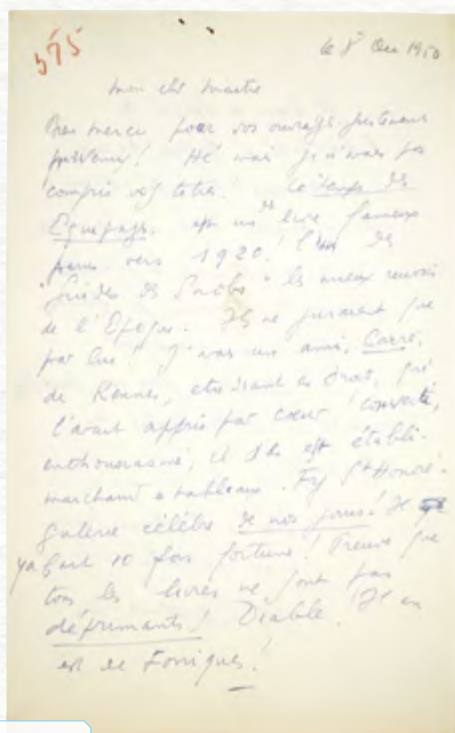 575
le 8 Dec 1950
mon cher maitre
Bien merci pour vos ouvrages
parvenus! Hé mais je n'avais pas
compris vos titres! Le temps des
Equipages. est un des livre fameux
parus vers 1920! l'un des
"Guides des Snobs" les mieux
de l'Epoque. Ils ne juraient que
par lui! J'avais un ami, Carré,
de Rennes, etudiant en droit, qui
l'avait appris par coeur! converti,
enthousiasmé, il s'en est établi
marchand de tableaux. Fg St Honoré
galerie célèbre de nos jours! Il
y a fait 10 fois fortune! Preuve que
tous les livres ne sont pas
déprimants! Diable! Il en
est de Toniques!